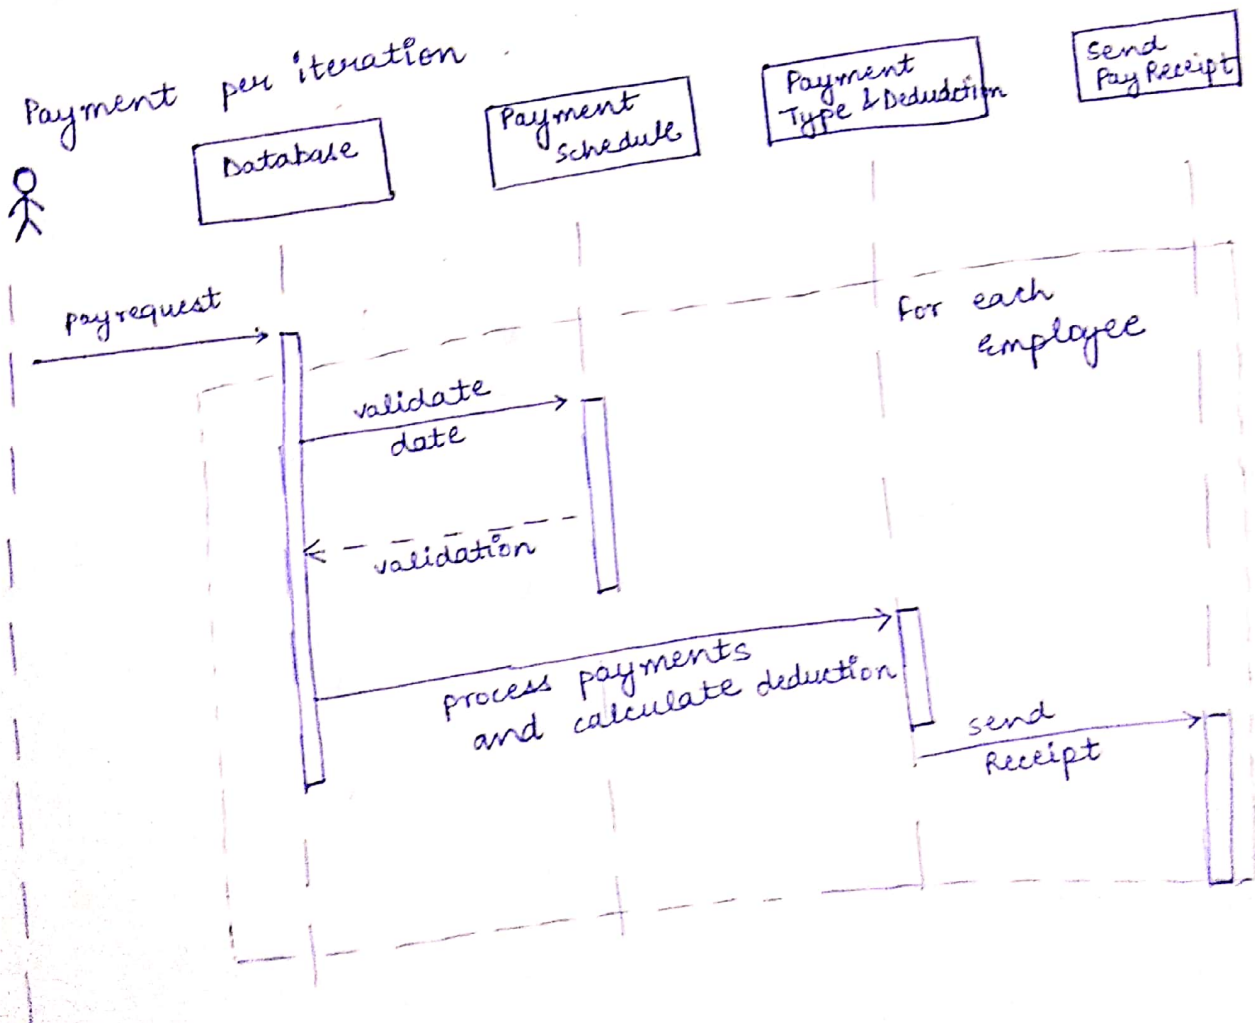 Payment per iteration
Database
Payment
Schedule
Payment
Type & Deduction
Send
Pay Receipt
payrequest
for each
employee
validate
date
validation
process payments
and calculate deduction
send
Receipt